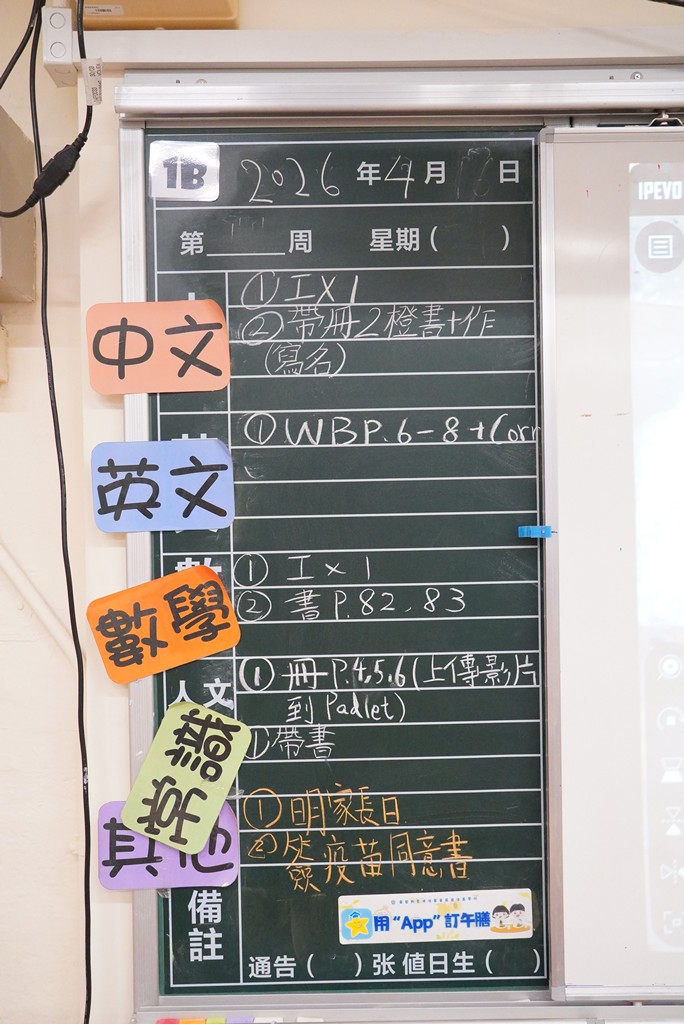 1B 2026 年 4 月 日
第 周 星期( )
中文
①工×1
②帶冊2橙書+作
(寫名)
英文
①WBP.6-8+Corr
數學
①工×1
②書P.82,83
人文
①冊P.4,5,6(上傳影片
到Padlet)
①帶書
其他
①明家長日
②簽疫苗同意書
備註
用“App”訂午膳
通告( )张 值日生( )
IPEVO